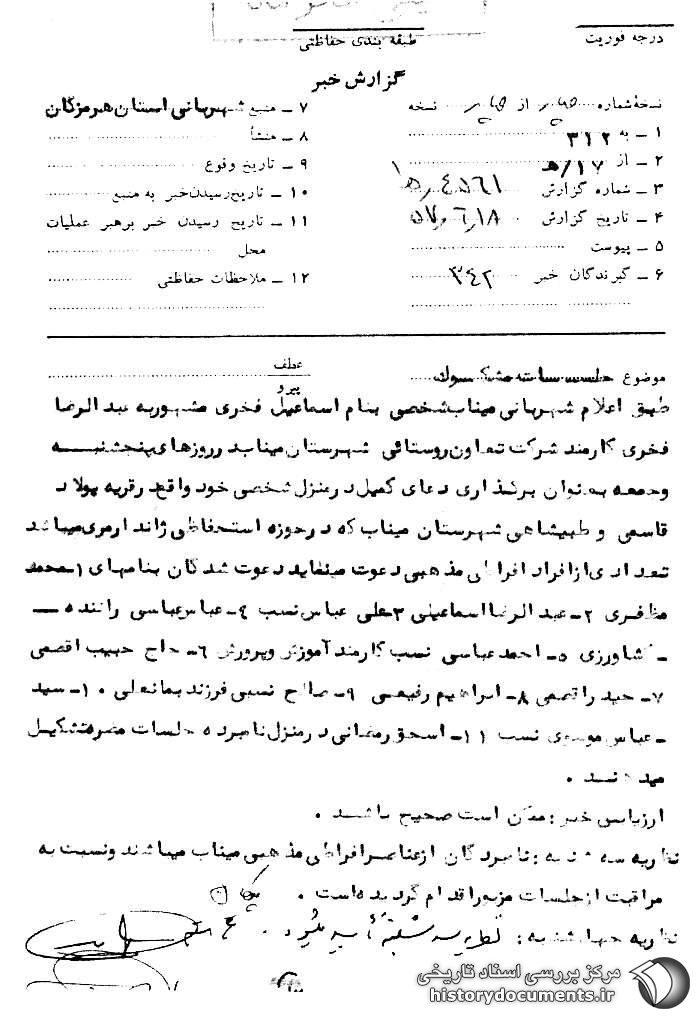 درجه فوریت
طبقه بندی حفاظتی
گزارش خبر
نسخهٔ شماره چهار از چهار نسخه
۱ ـ به ۳۱۲
۲ ـ از ۱۷/هـ
۳ ـ شماره گزارش ۴۵۶۱
۴ ـ تاریخ گزارش ۵۷٫۶٫۱۸
۵ ـ پیوست
۶ ـ گیرندگان خبر ۳۴۲
۷ ـ منبع شهربانی استان هرمزگان
۸ ـ منشأ
۹ ـ تاریخ وقوع
۱۰ ـ تاریخ رسیدن خبر به منبع
۱۱ ـ تاریخ رسیدن خبر برهبر عملیات
محل
۱۲ ـ ملاحظات حفاظتی
موضوع جلسات مشکوک
عطف
پیرو
طبق اعلام شهربانی میناب شخصی بنام اسماعیل فخری مشهور به عبدالرضا
فخری کارمند شرکت تعاون روستائی شهرستان میناب در روزهای پنجشنبه
وجمعه بعنوان برگذاری دعای کمیل در منزل شخصی خود واقع در قریه پولاد
قاسمی و طهیشاهی شهرستان میناب که در حوزه استحفاظی ژاندارمری میباشد
تعدادی از افراد افراطی مذهبی دعوت مینماید دعوت شدگان بنامهای ۱ـ محمد
مظفری ۲ـ عبدالرضا اسماعیلی ۳ـ علی عباس نسب ۴ـ عباس عباسی راننده ـ
ـ کشاورزی ۵ـ احمد عباسی نسب کارمند آموزش وپرورش ۶ـ حاج حبیب اقصمی
۷ـ حیدر اقصمی ۸ـ ابراهیم رفیعی ۹ـ صالح نسبی فرزند بمانعلی ۱۰ـ سید
ـ عباس موسوی نسب ۱۱ـ اسحق رمضانی در منزل نامبرده جلسات مضره تشکیل
میدهند .
ارزیابی خبر : ممکن است صحیح باشد .
نظریه سه شنبه : نامبردگان از عناصر افراطی مذهبی میناب میباشند ونسبت به
مراقبت از جلسات مزبور اقدام گردیده است .
نظریه چهارشنبه : نظریه سه شنبه تأیید میشود .
مرکز بررسی اسناد تاریخی
historydocuments.ir